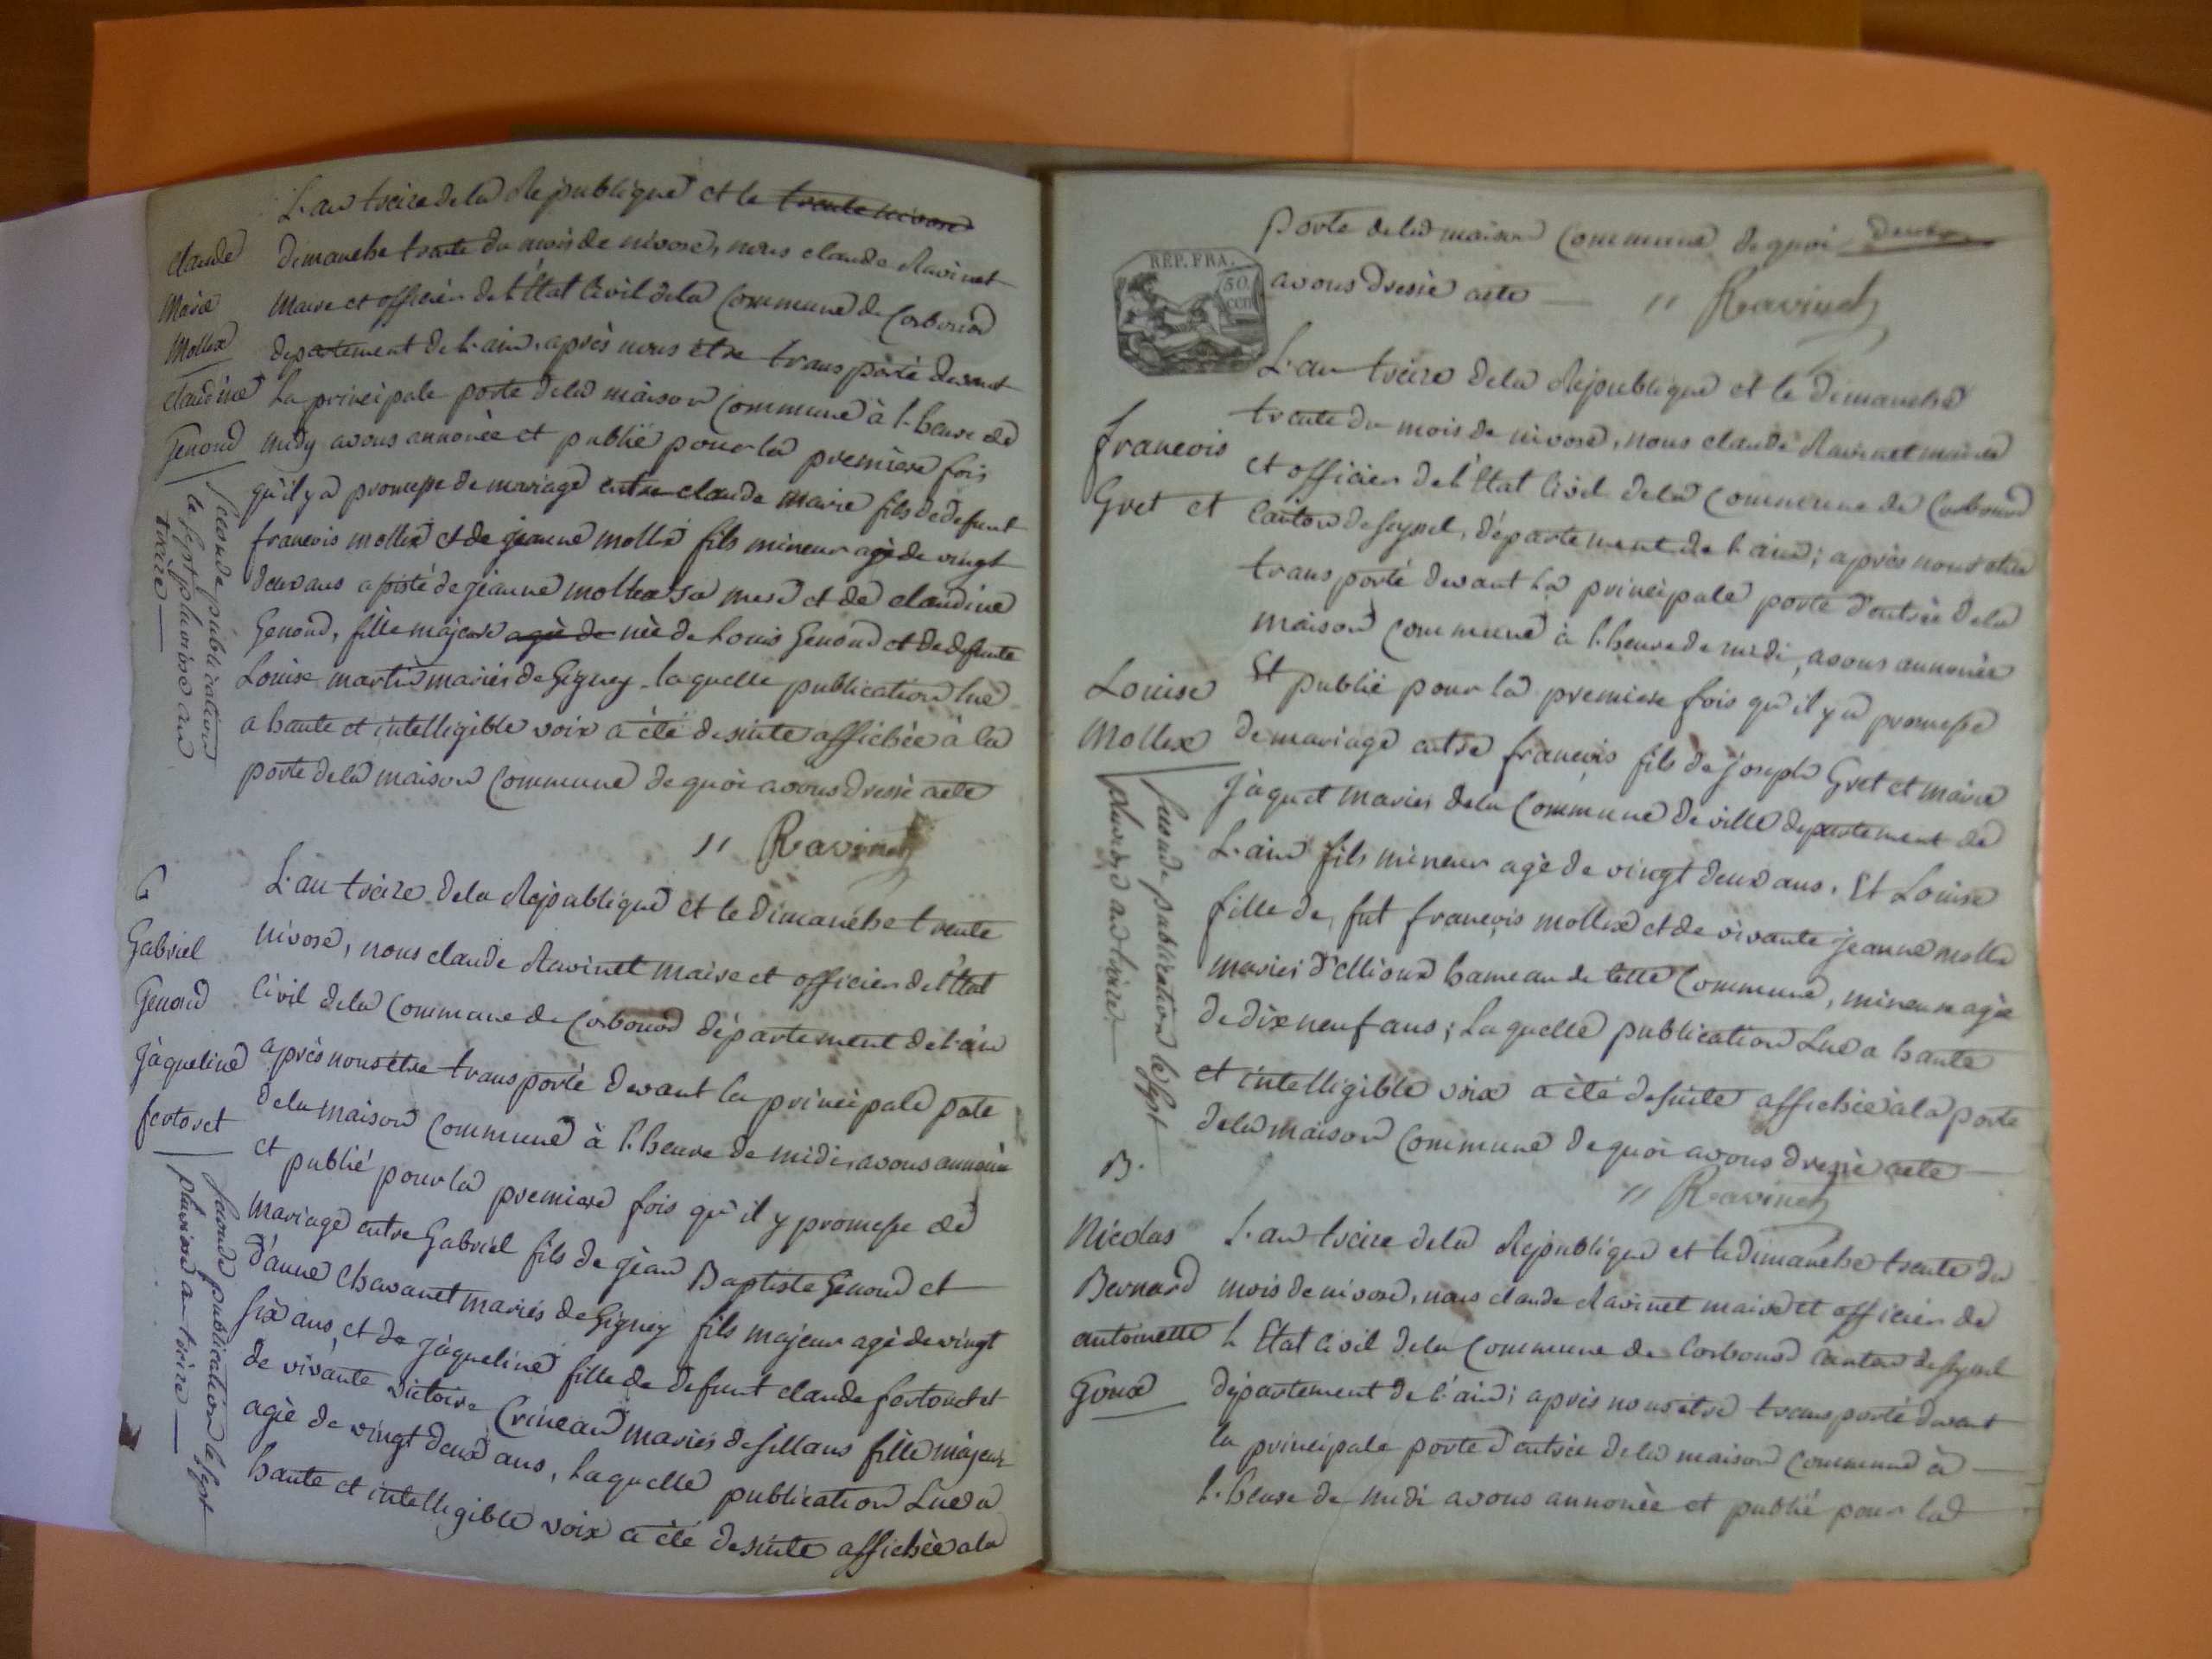 L'an treize de la Republique et le trente nivose
claude
Marie
Mollex
claudine
Genoud
dimanche trente du mois de nivose, nous claude Ravinet
Maire et officier de l'Etat Civil de la Commune de Corbonod
departement de l'ain, après nous etre transporté devant
La principale porte de la maison Commune à l'heure de
midy avons annoncé et publié pour la premiere fois
qu'il y a promesse de mariage entre claude marie fils de defunt
francois mollex et de jeanne mollex fils mineur agé de vingt
deux ans assisté de jeanne mollex sa mere et de claudine
Genoud, fille majeure agée de née de Louis Genoud et de defunte
Louise martin mariés de Gigney laquelle publication lue
a haute et intelligible voix a été de suite affichée à la
porte de la maison Commune de quoi avons dressé acte
seconde publication
le sept pluviose an
treize
" Ravinet
6
Gabriel
Genoud
Jàqueline
fertoret
L'an treize de la Republique et le dimanche trente
nivose, nous claude Ravinet maire et officier de l'Etat
Civil de la Commune de Corbonod département de l'ain
après nous être transporté devant la principale pote
de la maison Commune à l'heure de midi, avons annoncé
et publié pour la premiere fois qu'il y promesse de
mariage entre Gabriel fils de jean Baptiste Genoud et
d'anne Chavanet mariés de Gigney fils majeur agé de vingt
six ans, et de jàqueline fille de defunt claude fertoret et
de vivante victoire mariés de sillans fille majeur
agée de vingt deux ans, laquelle publication Lue a
haute et intelligible voix a été de suite affichée a la
seconde publication le sept
pluviose an treize
porte de la maison Commune de quoi
avons dressé acte " Ravinet
REP. FRA.
50
CEN
francois
Gret et
Louise
Mollex
L'an treize de la Republique et le dimanche
trente du mois de nivose, nous claude Ravinet maire
et officier de l'Etat Civil de la Commune de Corbonod
Canton de seyssel, département de l'ain; après nous etre
transporté devant la principale porte d'entrée de la
maison Commune à l'heure de midi, avons annoncé
Et publié pour la premiere fois qu'il y a promesse
de mariage entre francois fils de joseph Gret et marie
Jàquet mariés de la Commune de ville departement de
L'ain fils mineur agé de vingt deux ans. Et Louise
fille de fut francois mollex et de vivante jeanne mollex
mariés d'Etlioux hameau de cette Commune, mineure agée
de dix neuf ans; Laquelle publication Lue a haute
et intelligible voix a été de suite affichée à la porte
de la maison Commune de quoi avons dressé acte
seconde publication le sept
pluviose an treize
" Ravinet
B.
Nicolas
Bernard
antoinette
Goux
L'an treize de la Republique et le dimanche trente du
mois de nivose, nous claude Ravinet maire et officier de
L'Etat Civil de la Commune de Corbonod Canton de seyssel
département de l'ain; après nous etre transporté devant
la principale porte d'entrée de la maison Commune à
l'heure de midi avons annoncée et publié pour la